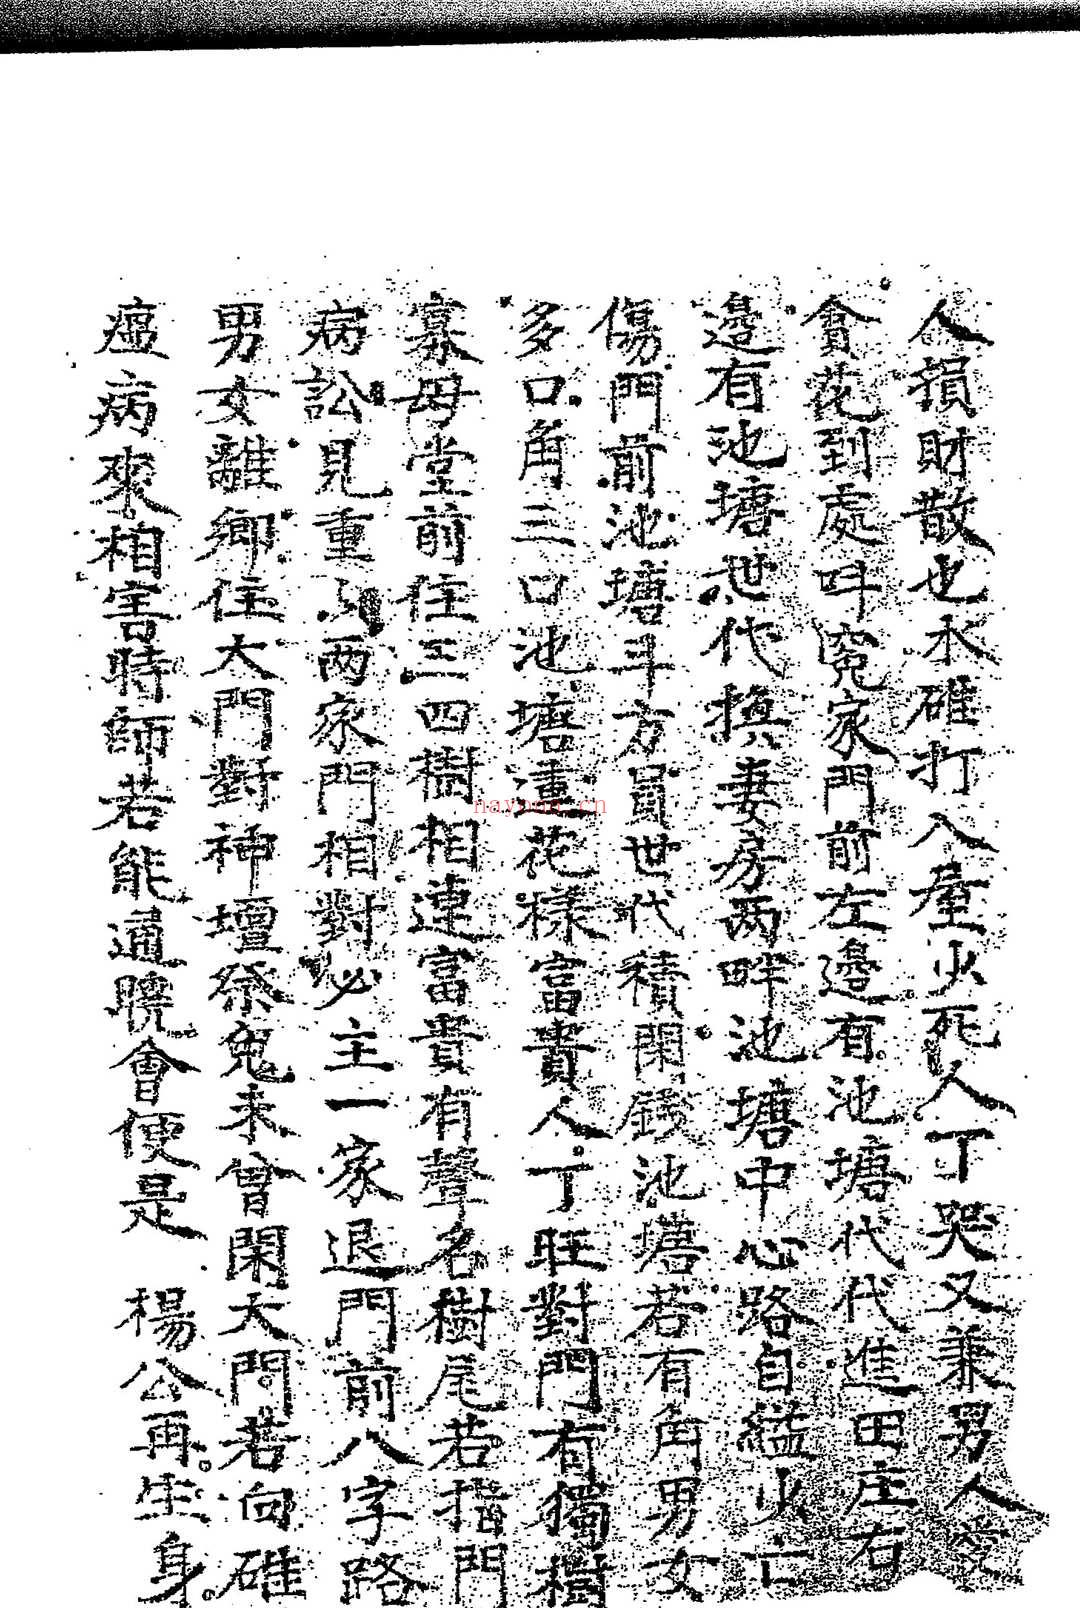 人損財散也水碓打入屋少死人丁哭又兼男人愛
貪花到處呌寃家門前左邊有池塘代代進田庄右
邊有池塘世代換妻房两畔池塘中心路自縊少亡
傷門前池塘斗方員世代積閑錢池塘若有角男女
多口角三口池塘蓮花樣富貴人丁旺對門有獨樹
寡母堂前住三四樹相連富貴有聲名樹尾若指門
病訟見重山两家門相對必主一家退門前八字路
男女離鄉住大門對神壇祭鬼未曾閑大門若向碓
瘟病來相害時師若能通曉會便是 楊公再生身
nayona.cn